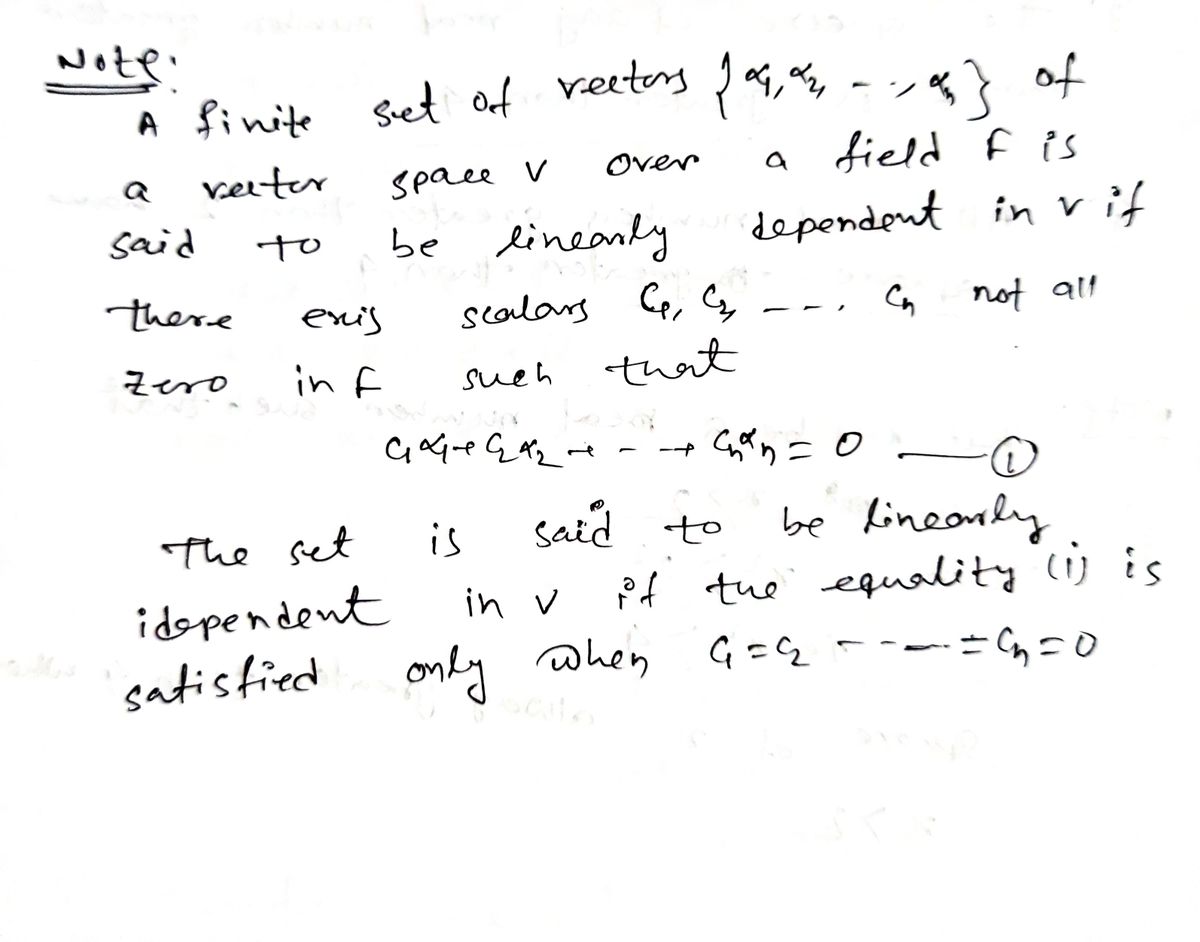 Note:
A finite set of vectors {α₁, α₂, - -, αₙ} of
a vector space V over a field F is
said to be linearly dependent in V if
there exis scalars C₁, C₂, - - -. Cₙ not all
zero in F such that
C₁α₁ + C₂α₂ + - - + Cₙαₙ = 0 —— ①
The set is said to be linearly
idependent in V if the equality (i) is
satisfied only when C₁ = C₂ - - - - = Cₙ = 0